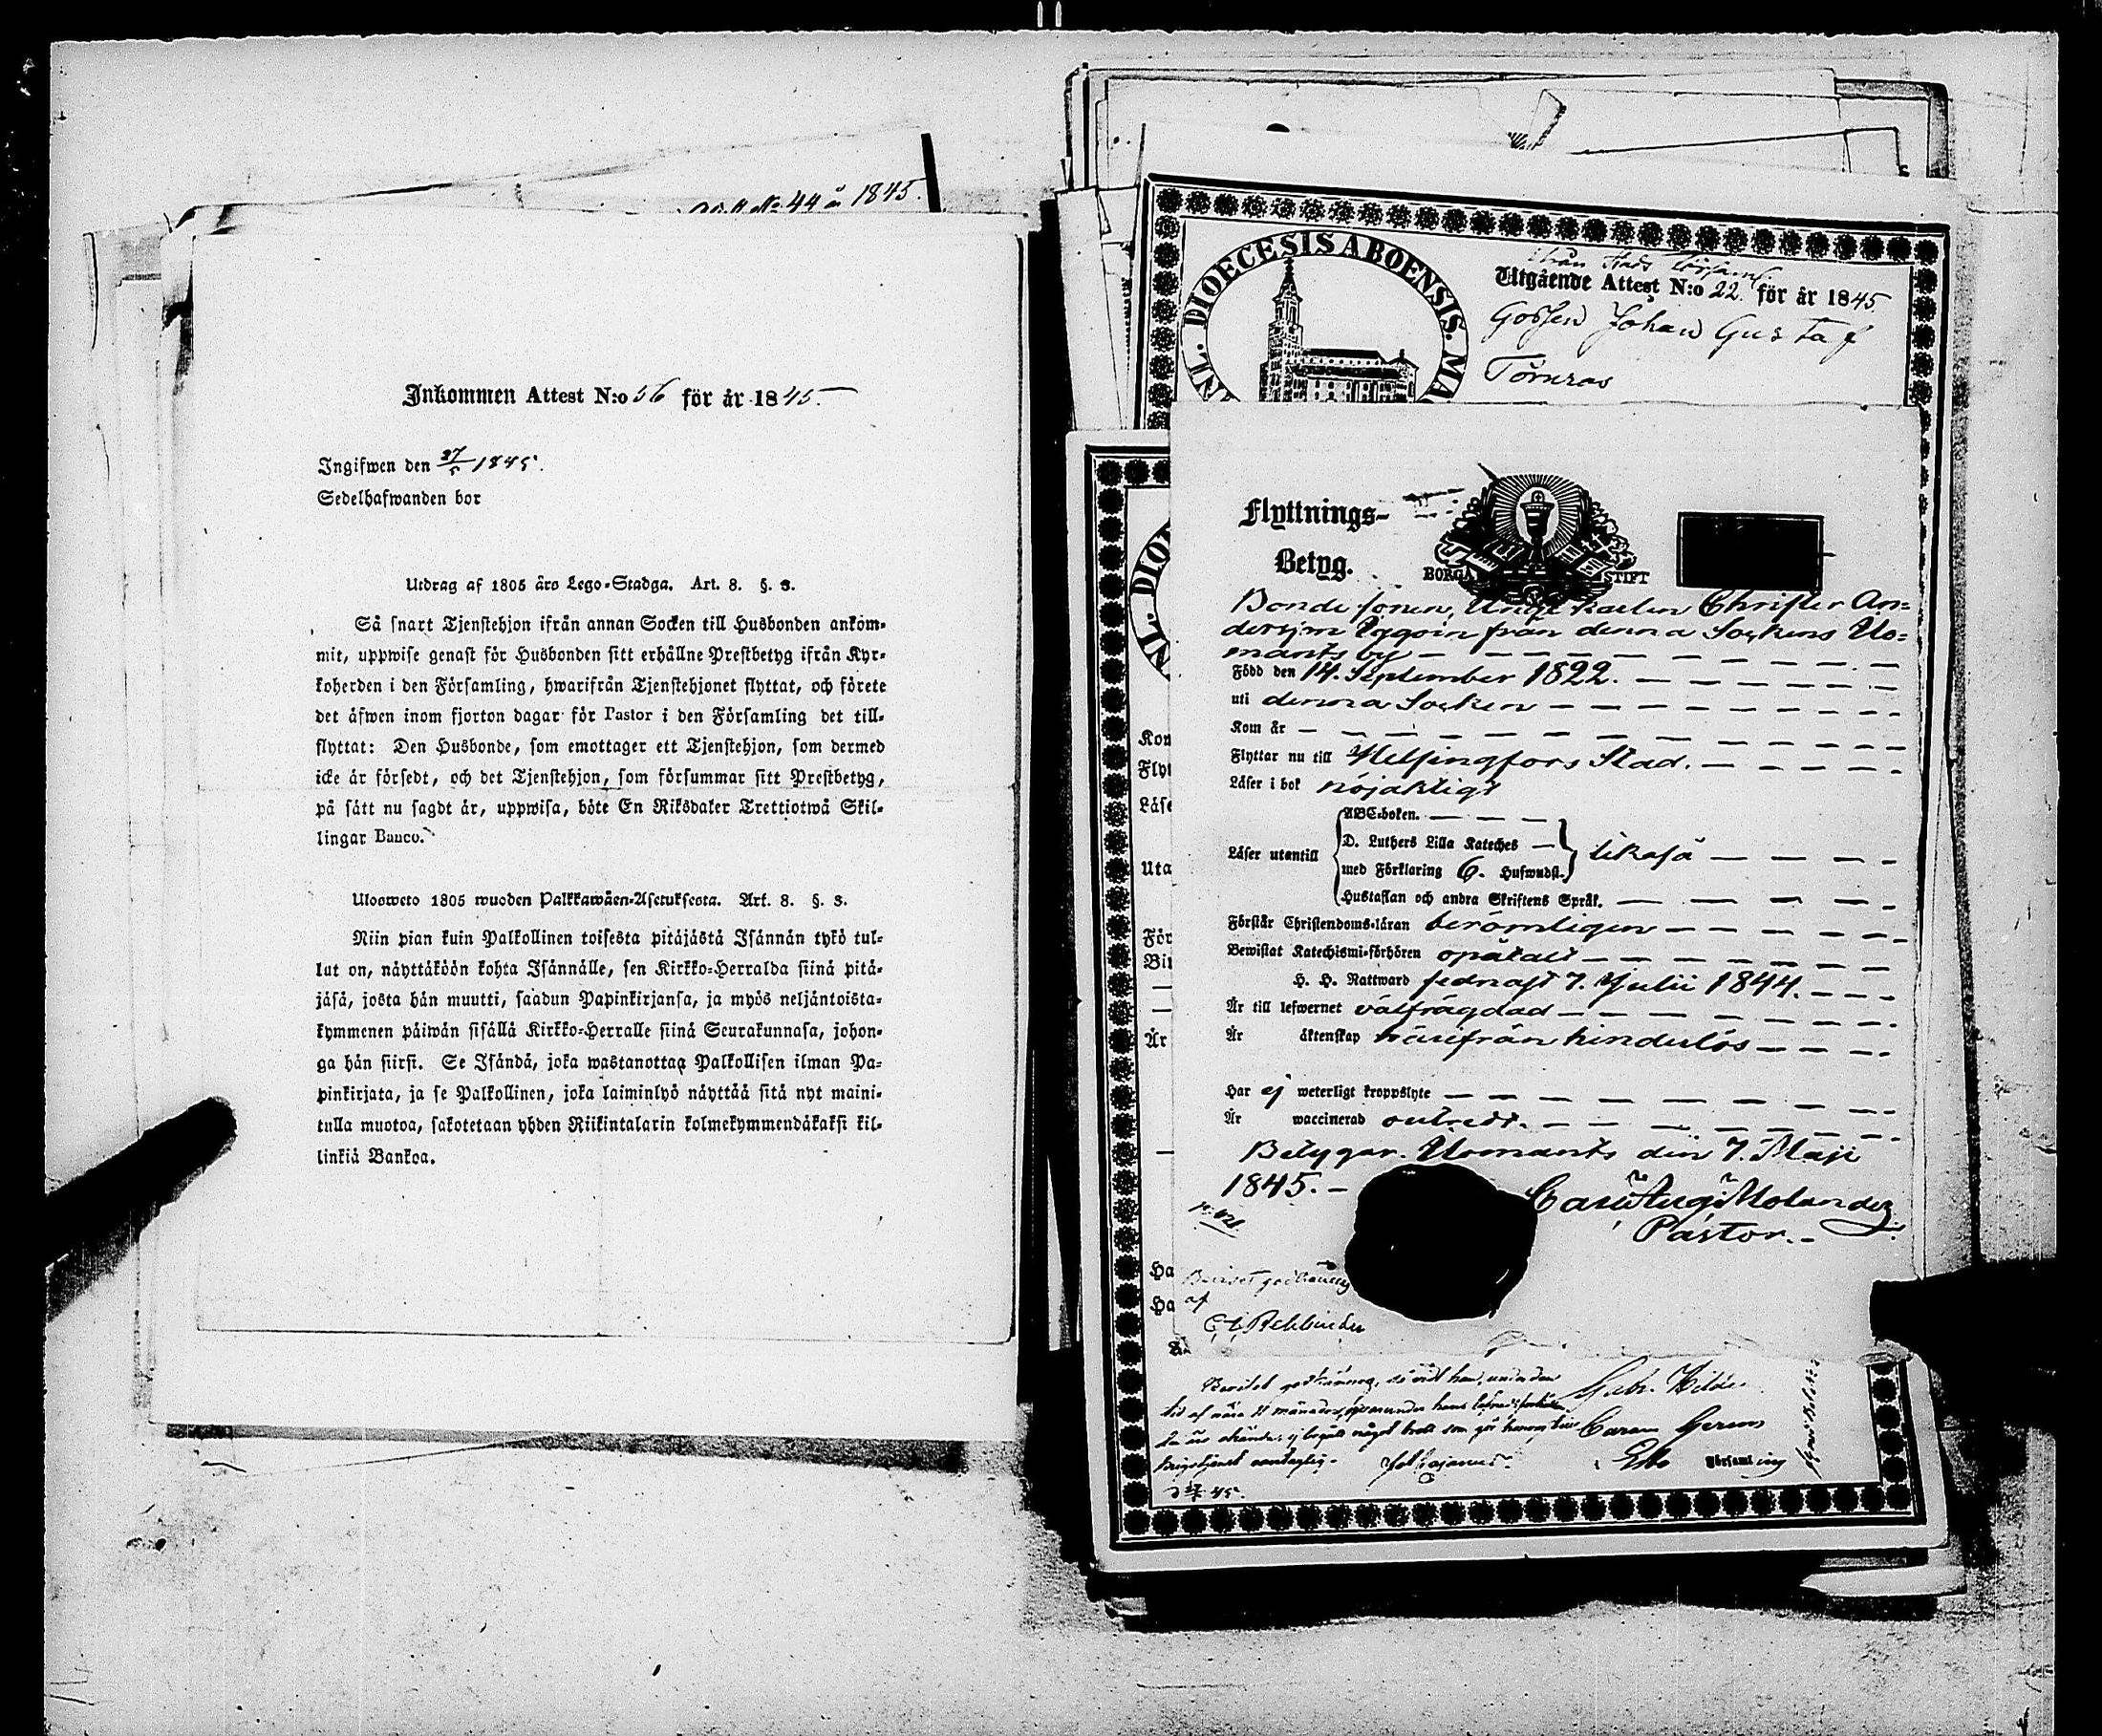 N:o 44 år 1845.
Inkommen Attest N:o 56 för år 1845.
Ingifwen den 27/5 1845.
Sedelhafwanden bor
Utdrag af 1805 års Lego-Stadga. Art. 8. §. 3.
Så snart Tjenstehjon ifrån annan Socken till Husbonden ankom-
mit, uppwise genast för Husbonden sitt erhållne Prestbetyg ifrån Kyr-
koherden i den Församling, hwarifrån Tjenstehjonet flyttat, och förete
det äfwen inom fjorton dagar för Pastor i den Församling det till-
flyttat: Den Husbonde, som emottager ett Tjenstehjon, som dermed
icke är försedt, och det Tjenstehjon, som försummar sitt Prestbetyg,
på sätt nu sagdt är, uppwisa, böte En Riksdaler Trettiotwå Skil-
lingar Banco.
Ulosweto 1805 wuoden Palkkawäen-Asetuksesta. Art. 8. §. 3.
Niin pian kuin Palkollinen toisesta pitäjästä Isännän tykö tul-
lut on, näyttäköön kohta Isännälle, sen Kirkko-Herralda siinä pitä-
jäsä, josta hän muutti, saadun Papinkirjansa, ja myös neljäntoista-
kymmenen päiwän sisällä Kirkko-Herralle siinä Seurakunnasa, johon-
ga hän siirsi. Se Isändä, joka wastanottaa Palkollisen ilman Pa-
pinkirjata, ja se Palkollinen, joka laiminlyö näyttää sitä nyt maini-
tulla muotoa, sakotetaan yhden Riikintalarin kolmekymmendäkaksi kil-
linkiä Bankoa.
DIOECESIS ABOENSIS. MA
Utgående Attest N:o 22. för år 1845
Gossen Johan Gustaf
Törnroos
Flyttnings-
Betyg.
BORGÅ STIFT
Bondesonen, Unge karlen Christer An-
dersson Yggoin från denna Sockens Us-
mants by
Född den 14. September 1822.
uti denna Socken
Kom år
Flyttar nu till Helsingfors Stad.
Läser i bok nöjaktigt
ABC-boken.
Läser utantill D. Luthers Lilla Kateches
med Förklaring 6. Hufwudst. likaså
Hustaflan och andra Skriftens Språk.
Förstår Christendoms-läran berömligen
Bewistat Katechismi-förhören opåtalt
H. H. Nattward sednast 7. Julii 1844.
Är till lefwernet välfrägdad
Är äktenskap härifrån hinderlös
Har ej weterligt kroppslyte
Är waccinerad
Betygar. Usmants den 7. Maji
1845.
Molander
Pastor.
af
Kom
Flyt
Läse
Uta
För
Är
Församling